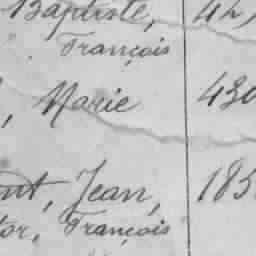 Baptiste, 42,
François
, Marie 430
nt, Jean, 185
or, François